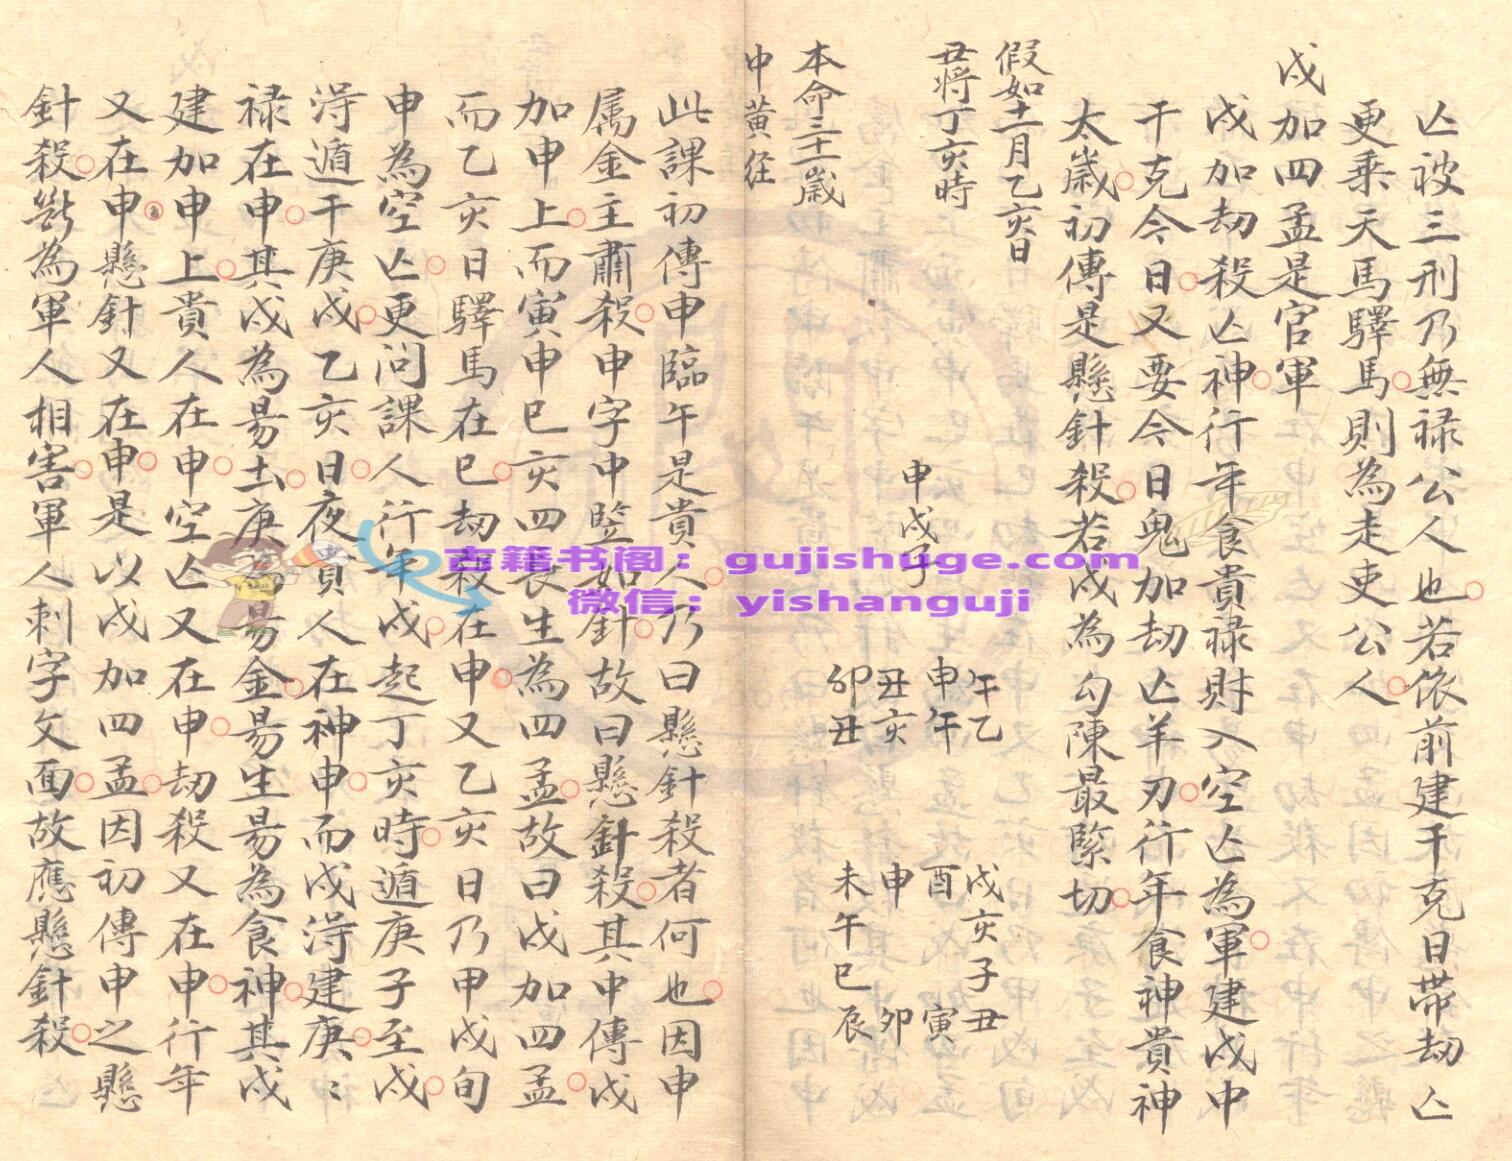 亾被三刑乃無禄公人也若依前建干克日带劫亾
更乗天馬驛馬則為走吏公人
戌加四孟是官軍
戌加劫殺亾神行年食貴禄財入空亾為軍建戌中
干克今日又要今日鬼加劫亾羊刃行年食神貴神
太歲初傳是懸針殺若戌為勾陳最緊切
假如十一月乙亥日
丑将丁亥時
本命三十一歲
申黄径
申戌子
午乙
申午
丑亥
卯丑
戌亥子丑
酉 寅
申 卯
未午巳辰
此課初傳申臨午是貴人乃曰懸針殺者何也因申
属金主肅殺申字中竪如針故曰懸針殺其中傳戌
加申上而寅申巳亥四長生為四孟故曰戌加四孟
而乙亥日驛馬在巳劫殺在申又乙亥日乃甲戌旬
申為空亾更问課人行年戌起丁亥時遁庚子至戌
淂遁干庚戌乙亥日夜貴人在神申而戌淂建庚〻
禄在申其戌為昜土庚為昜金昜生昜為食神其戌
建加申上貴人在申空亾又在申劫殺又在申行年
又在申懸針又在申是以戌加四孟因初傳申之懸
針殺斷為軍人相害軍人刺字文面故應懸針殺
古籍书阁：gujishuge.com
微信：yishanguji